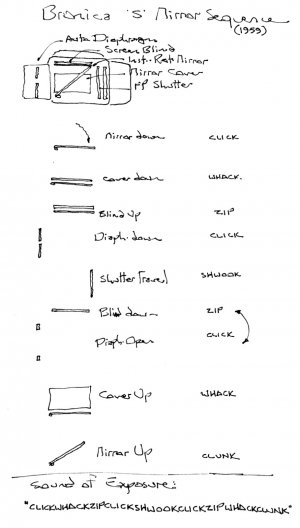 Bronica 'S' Mirror Sequence
(1959)
Auto Diaphragm
Screen Blind
Inst. Ret Mirror
Mirror Cover
FP Shutter
Mirror down CLICK
Cover down WHACK.
Blind Up ZIP
Diaph. down CLICK
Shutter Travel SHWOOK
Blind down ZIP
Diaph Open CLICK
Cover Up WHACK
Mirror Up CLUNK
Sound of Exposure:
"CLICKWHACKZIPCLICKSHWOOKCLICKZIPWHACKCLUNK"